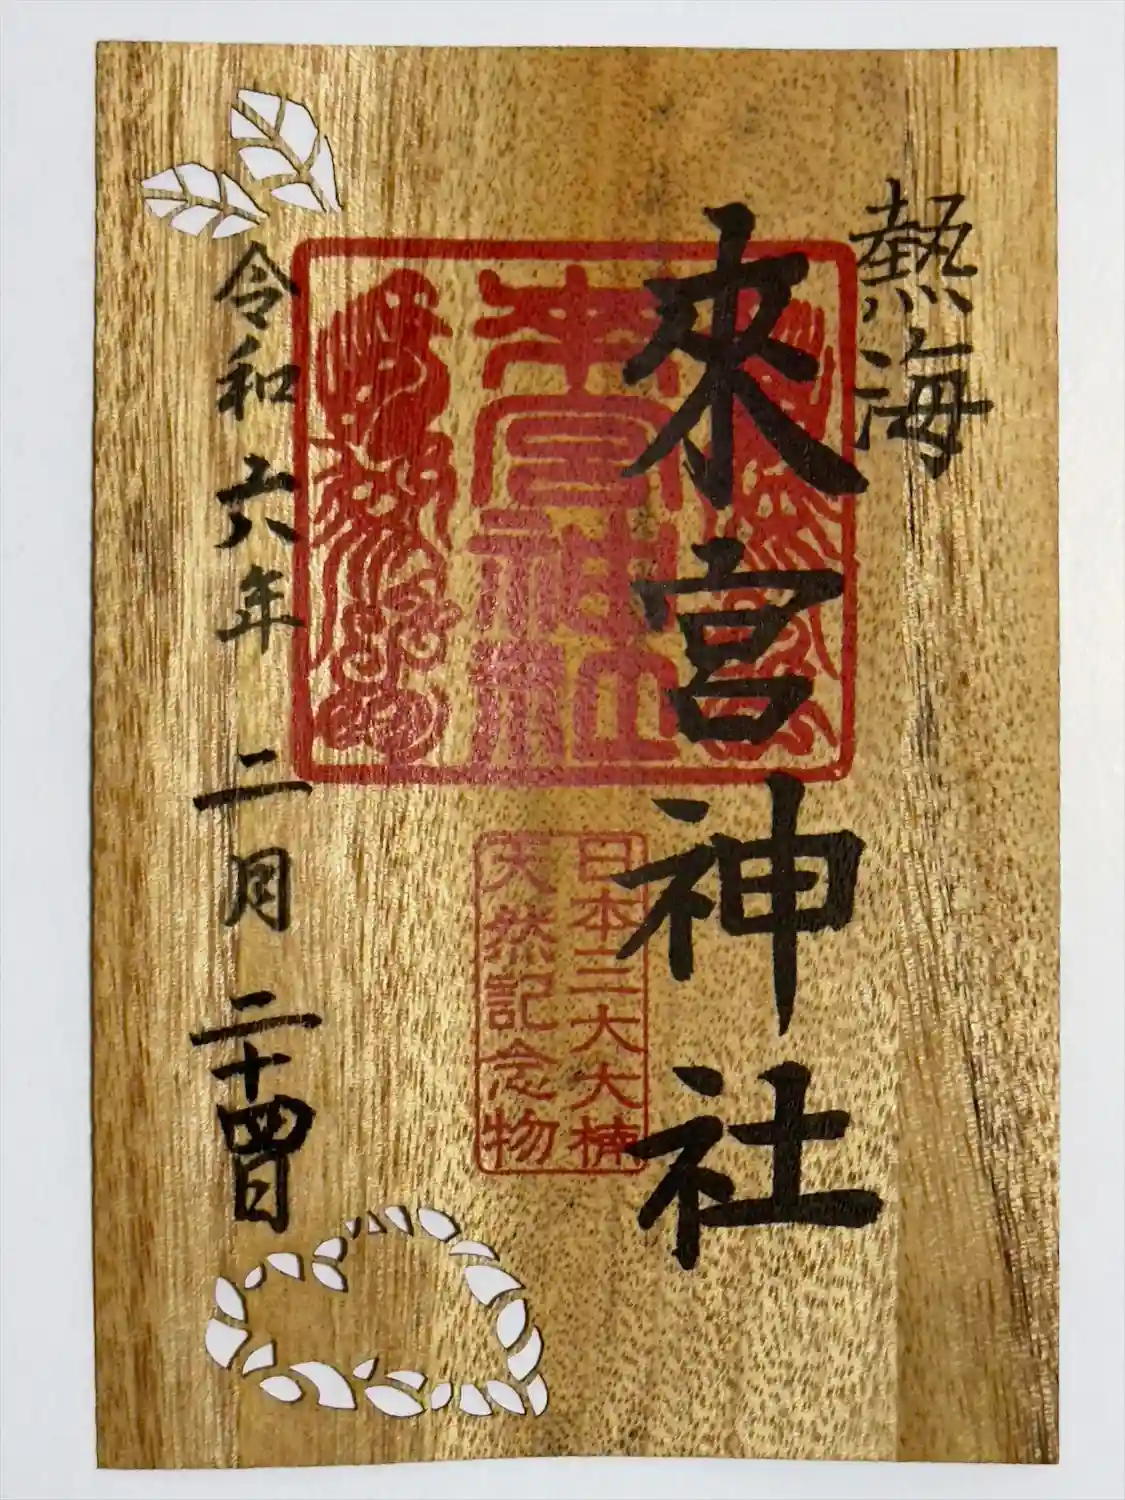 熱海
來宮神社
来宮神社
日本三大大楠
天然記念物
令和六年二月二十四日